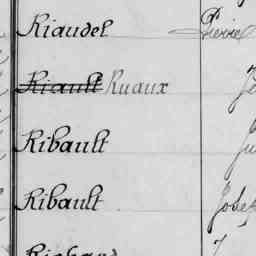 Riaudel Pierre
Riault Ruaux
Ribault
Ribault Josep
Richard